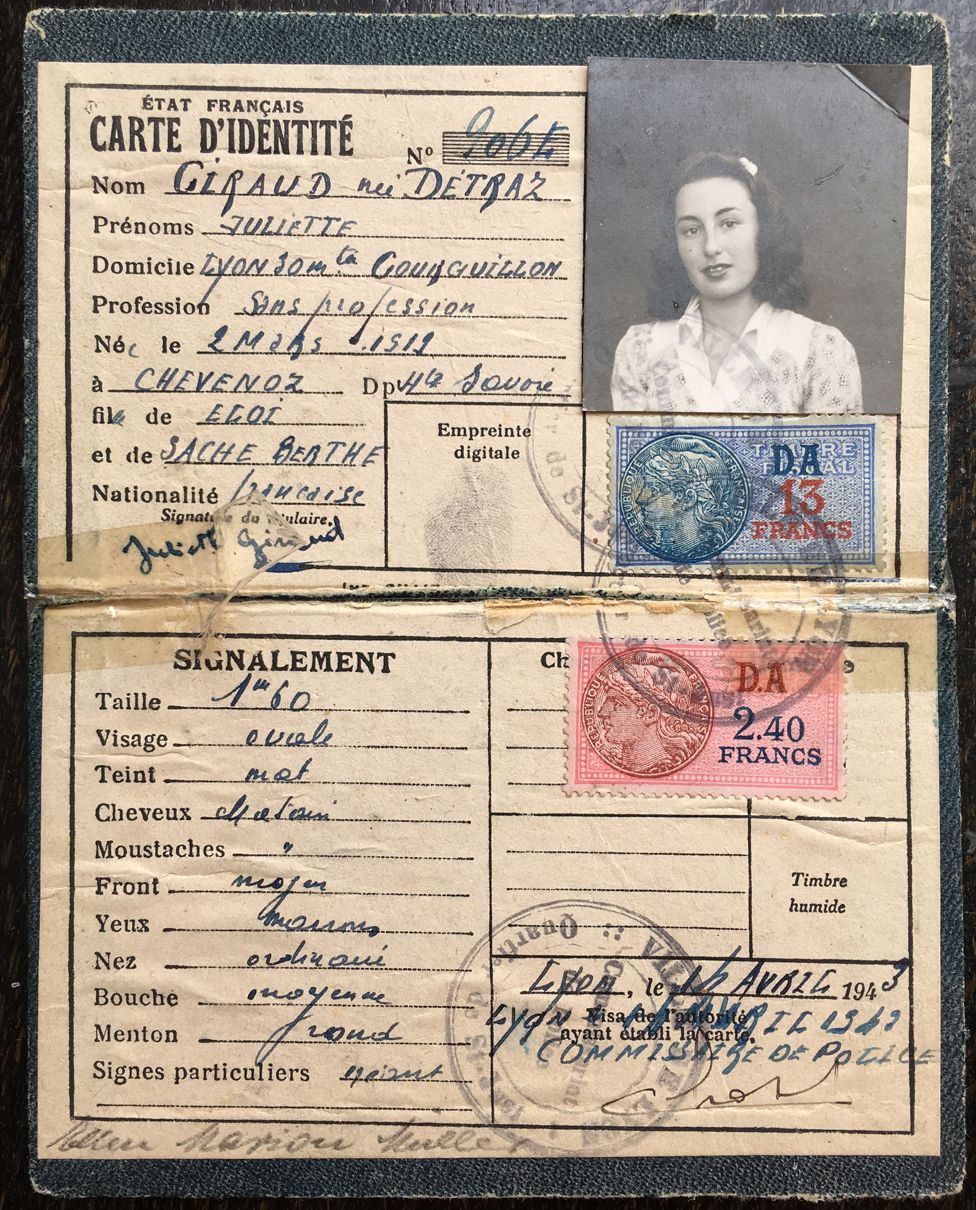 ÉTAT FRANÇAIS
CARTE D'IDENTITÉ
Nº
Nom GIRAUD née DÉTRAZ
Prénoms JULIETTE
Domicile LYON 30 mtée GOURGUILLON
Profession Sans profession
Née le 2 MARS 1919
à CHEVENOZ Dpt Hte Savoie
fille de ELOI
et de SACHE BERTHE
Nationalité française
Signature du titulaire,
Juliette Giraud
Empreinte
digitale
RÉPUBLIQUE FRANÇAISE
TIMBRE
FISCAL
D.A
13
FRANCS
SIGNALEMENT
Taille 1m60
Visage ovale
Teint mat
Cheveux chatain
Moustaches "
Front moyen
Yeux marrons
Nez ordinaire
Bouche moyenne
Menton rond
Signes particuliers néant
Ch
RÉPUBLIQUE FRANÇAISE
D.A
2.40
FRANCS
Timbre
humide
Lyon, le 16 AVRIL 1943
Visa de l'autorité
ayant établi la carte,
LYON AVRIL 1943
COMMISSAIRE DE POLICE
VILLE DE LYON
Quartier
Ellen Marion